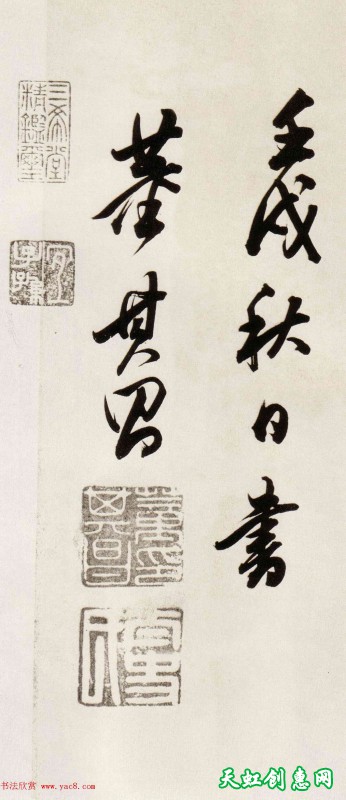 壬戌秋日書
董其昌
三希堂精鑑璽
宜子孫
書法欣赏 www.yac8.com
天虹创惠网